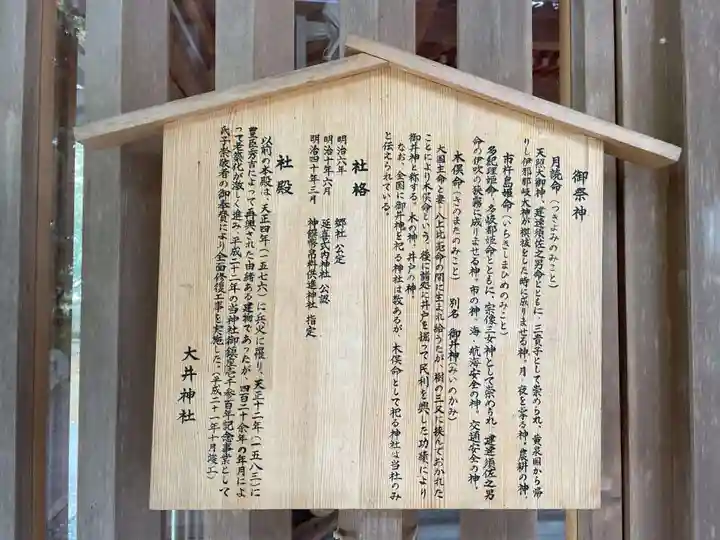 御祭神
月読命（つきよみのみこと）
天照大御神、建速須佐之男命とともに、三貴子として崇められ、黄泉国から帰
りし伊邪那岐大神が禊祓をした時に成りませる神。月・夜を掌る神。農耕の神。
市杵島姫命（いちきしまひめのみこと）
多紀理毘命、多岐都姫命とともに、宗像三女神として崇められ、建速須佐之男
命の伊吹の狭霧に成りませる神。市の神、海・航海安全の神。交通安全の神。
木俣命（きのまたのみこと）　別名　御井神（みいのかみ）
大国主命と妻、八上比売命の間に生まれ給うたが、樹の三又に挟んでおかれた
ことにより木俣命という。後に諸処に井戸を掘って民利を興した功績により
御井神と称する。木の神、井戸の神。
なお、全国に御井神を祀る神社は数あるが、木俣命として祀る神社は当社のみ
と伝えられている。
社格
明治六年　郷社 公定
明治十年六月　延喜式内神社 公認
明治四十年三月　神饌幣帛料供進神社 指定
社殿
以前の本殿は、天正四年（一五七六）に兵火に罹り、天正十一年（一五八三）に
豊臣秀吉によって再興された由緒ある建物であったが、四百二十余年の年月によ
って老築化が激しく進み、平成二十二年の当神社御鎮座壱千参百年記念事業として
氏子崇敬者の御奉賛により全面修復工事を実施した。（平成二十一年十月竣工）
大井神社